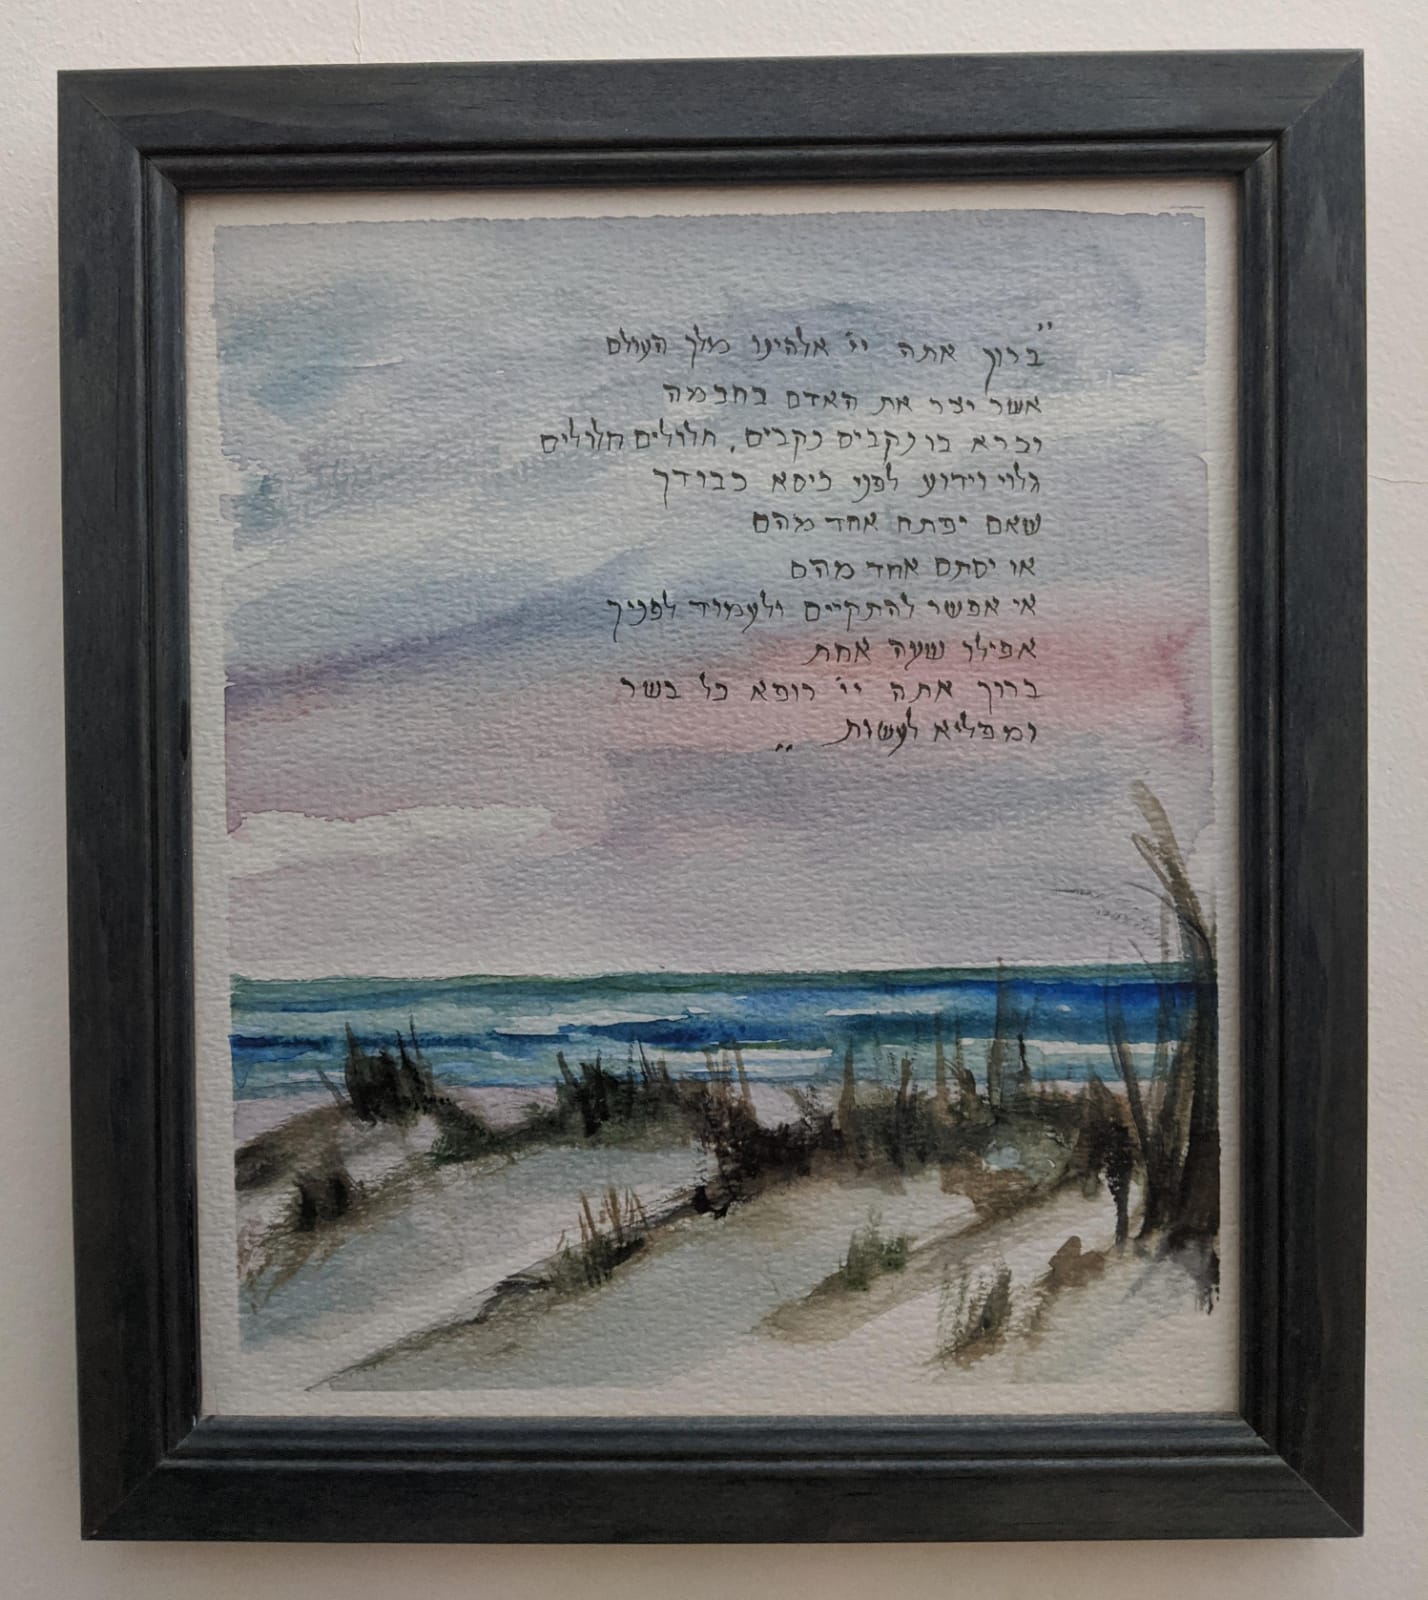 "ברוך אתה יי אלהינו מלך העולם
אשר יצר את האדם בחכמה
וברא בו נקבים נקבים, חלולים חלולים
גלוי וידוע לפני כיסא כבודך
שאם יפתח אחד מהם
או יסתם אחד מהם
אי אפשר להתקיים ולעמוד לפניך
אפילו שעה אחת
ברוך אתה יי רופא כל בשר
ומפליא לעשות"